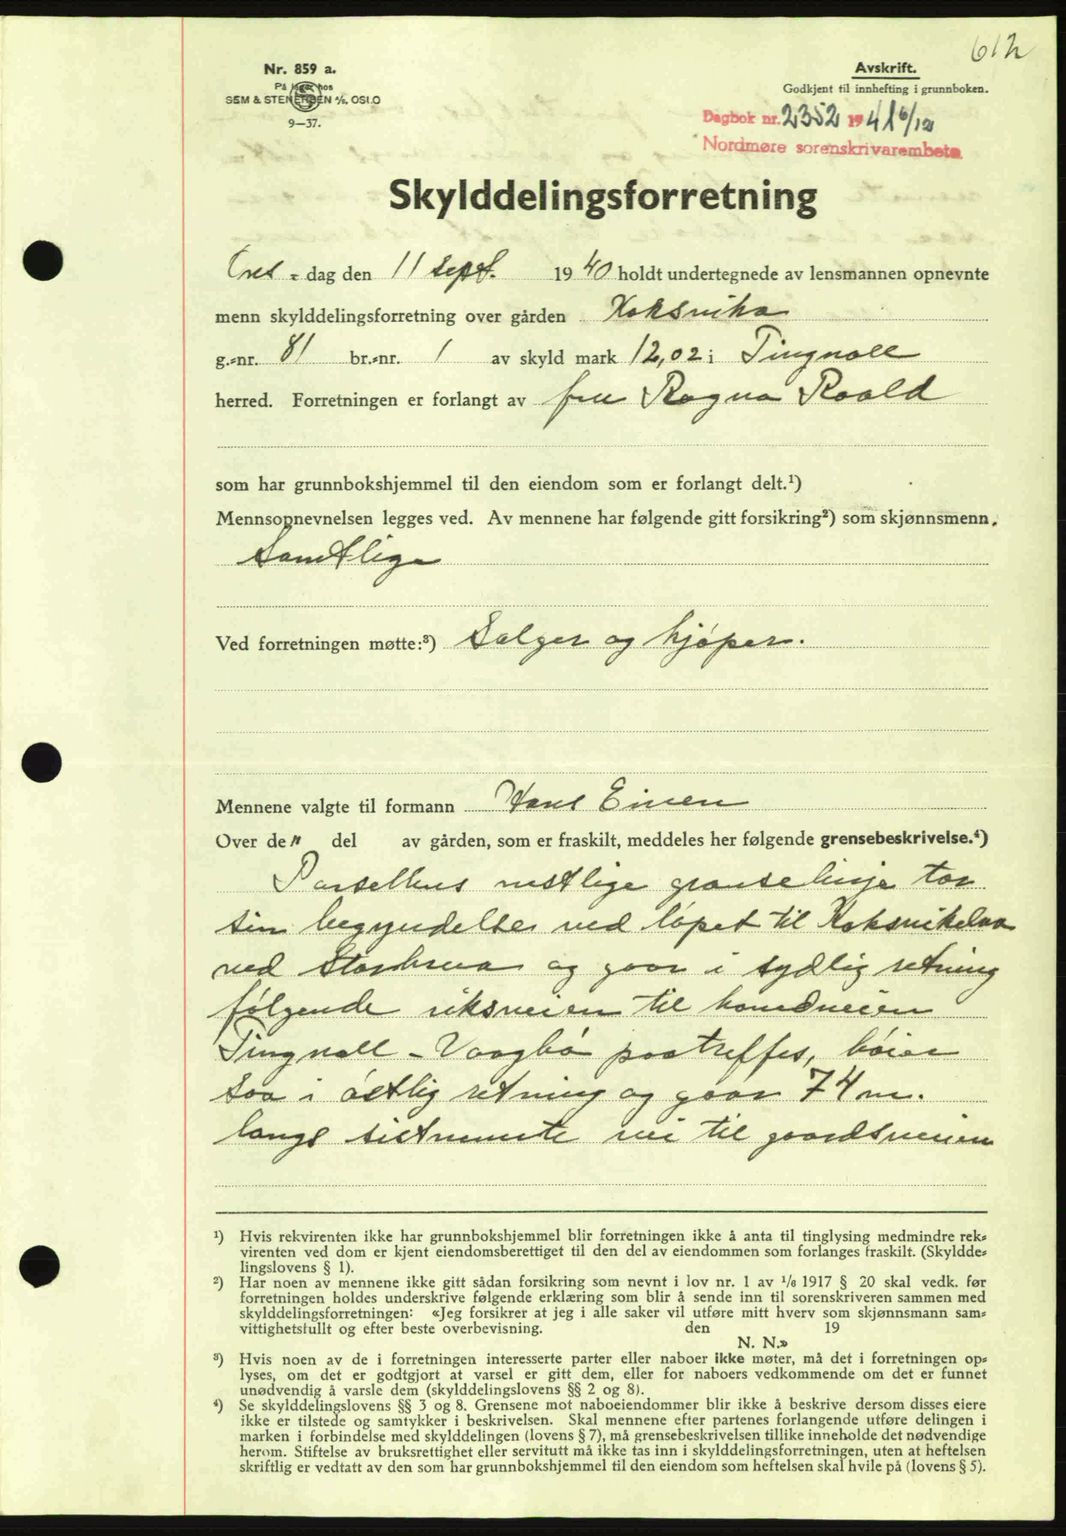 612
Nr. 859 a.
På lager hos
SEM & STENERSEN A/S, OSLO
9—37.
Avskrift.
Godkjent til innhefting i grunnboken.
Dagbok nr. 2352 1941 6/12
Nordmøre sorenskrivarembete
Skylddelingsforretning
Ons-dag den 11 sept. 1940 holdt undertegnede av lensmannen opnevnte
menn skylddelingsforretning over gården Koksvika
g.-nr. 81 br.-nr. 1 av skyld mark 12,02 i Tingvoll
herred. Forretningen er forlangt av fru Ragna Roald
som har grunnbokshjemmel til den eiendom som er forlangt delt.¹)
Mennsopnevnelsen legges ved. Av mennene har følgende gitt forsikring²) som skjønnsmenn.
Samtlige
Ved forretningen møtte:³) Selger og kjøper.
Mennene valgte til formann Hans
Over de n del av gården, som er fraskilt, meddeles her følgende grensebeskrivelse.⁴)
Parsellens vestlige grænselinje tar
sin begyndelse ved løpet til
ved og gaar i sydlig retning
følgende riksveien til
Tingvoll - Vaagbø paatreffes, bøier
saa i østlig retning og gaar 74 m.
langs sistnevnte vei til gaardsveien
¹) Hvis rekvirenten ikke har grunnbokshjemmel blir forretningen ikke å anta til tinglysing medmindre rek-
virenten ved dom er kjent eiendomsberettiget til den del av eiendommen som forlanges fraskilt. (Skyldde-
lingslovens § 1).
²) Har noen av mennene ikke gitt sådan forsikring som nevnt i lov nr. 1 av 1/6 1917 § 20 skal vedk. før
forretningen holdes underskrive følgende erklæring som blir å sende inn til sorenskriveren sammen med
skylddelingsforretningen: «Jeg forsikrer at jeg i alle saker vil utføre mitt hverv som skjønnsmann sam-
vittighetsfullt og efter beste overbevisning. den 19
N. N.»
³) Hvis noen av de i forretningen interesserte parter eller naboer ikke møter, må det i forretningen op-
lyses, om det er godtgjort at varsel er gitt dem, eller for naboers vedkommende om det er funnet
unødvendig å varsle dem (skylddelingslovens §§ 2 og 8).
⁴) Se skylddelingslovens §§ 3 og 8. Grensene mot naboeiendommer blir ikke å beskrive dersom disses eiere
ikke er tilstede og samtykker i beskrivelsen. Skal mennene efter partenes forlangende utføre delingen i
marken i forbindelse med skylddelingen (lovens § 7), må grensebeskrivelsen tillike inneholde det nødvendige
herom. Stiftelse av bruksrettighet eller servitutt må ikke tas inn i skylddelingsforretningen, uten at heftelsen
skriftlig er vedtatt av den som har grunnbokshjemmel til den eiendom som heftelsen skal hvile på (lovens § 5).